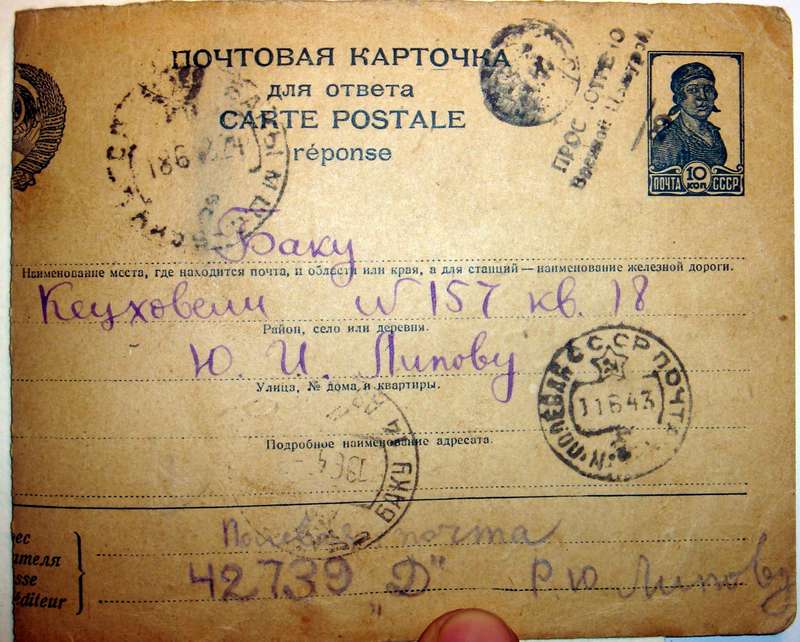 ПОЧТОВАЯ КАРТОЧКА
для ответа
CARTE POSTALE
réponse
ПРОСМОТРЕНО
Военной Цензурой
ПОЧТА 10 КОП СССР
186
Баку
Наименование места, где находится почта, и области или края, а для станций — наименование железной дороги.
Кецховели N 157 кв. 18
Район, село или деревня.
Ю. И. Липову
Улица, № дома и квартиры.
СССР ПОЧТА ПОЛЕВАЯ
11 6 43
Подробное наименование адресата.
БАКУ
Полевая почта
42739 "Д" Р. Ю Липову
ес
ателя
sse
éditeur